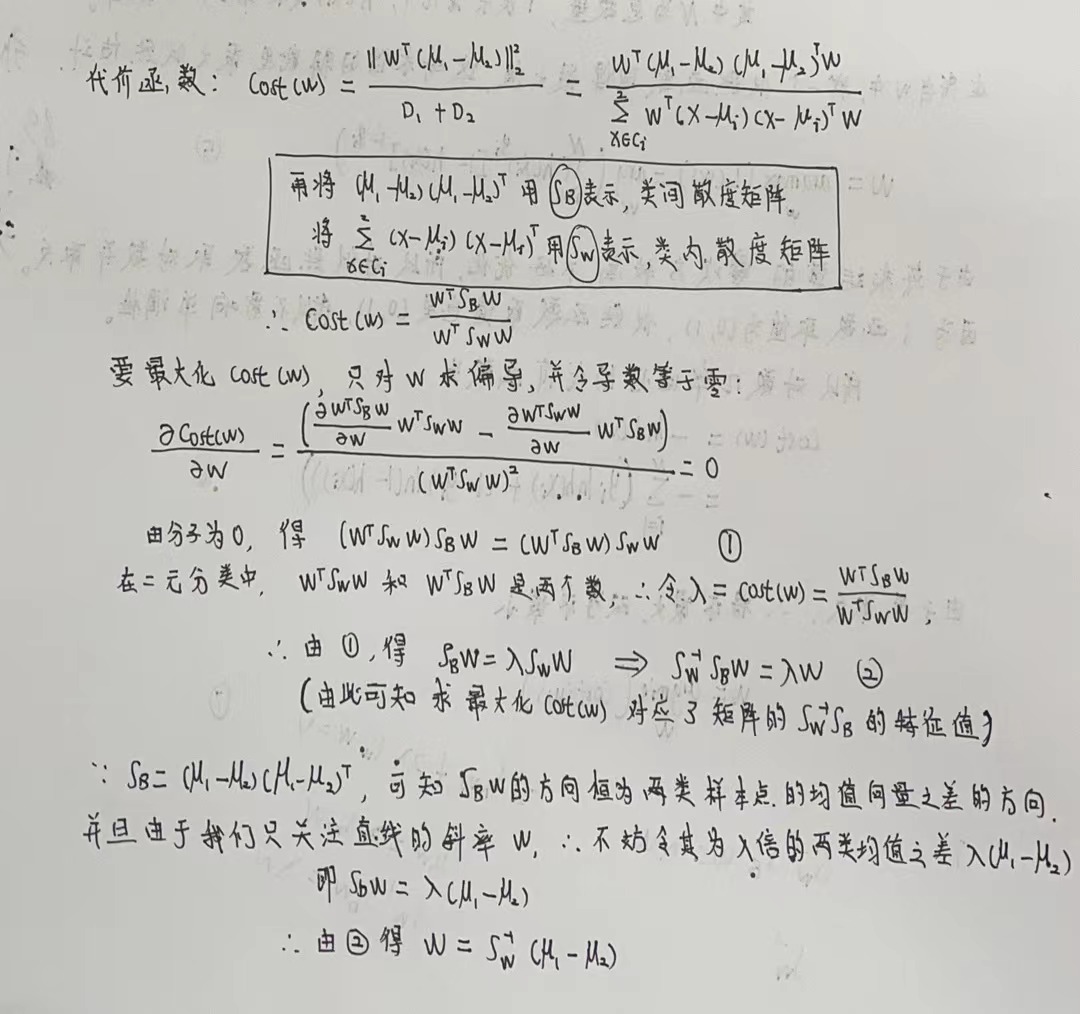 代价函数: Cost(w) = ||W^T(μ₁-μ₂)||₂² / (D₁+D₂) = W^T(μ₁-μ₂)(μ₁-μ₂)^T W / Σ_{x∈Cᵢ}^2 W^T(X-μᵢ)(X-μᵢ)^T W
再将 (μ₁-μ₂)(μ₁-μ₂)^T 用 S_B 表示, 类间散度矩阵.
将 Σ_{x∈Cᵢ}^2 (X-μᵢ)(X-μᵢ)^T 用 S_W 表示, 类内散度矩阵
∴ Cost(w) = W^T S_B W / W^T S_W W
要最大化 Cost(w), 只对 W 求偏导, 并令导数等于零:
∂Cost(w)/∂W = (∂W^T S_B W/∂W W^T S_W W - ∂W^T S_W W/∂W W^T S_B W) / (W^T S_W W)² = 0
由分子为0, 得 (W^T S_W W) S_B W = (W^T S_B W) S_W W ①
在二元分类中, W^T S_W W 和 W^T S_B W 是两个数, ∴ 令 λ = Cost(w) = W^T S_B W / W^T S_W W,
∴ 由 ①, 得 S_B W = λ S_W W ⇒ S_W^-1 S_B W = λW ②
(由此可知 求最大化 Cost(w) 对应了矩阵的 S_W^-1 S_B 的特征值)
∵ S_B = (μ₁-μ₂)(μ₁-μ₂)^T, 可知 S_B W 的方向恒为两类样本点的均值向量之差的方向.
并且由于我们只关注直线的斜率 W, ∴ 不妨令其为 λ倍的两类均值之差 λ(μ₁-μ₂)
即 S_b W = λ(μ₁-μ₂)
∴ 由 ② 得 W = S_W^-1 (μ₁-μ₂)